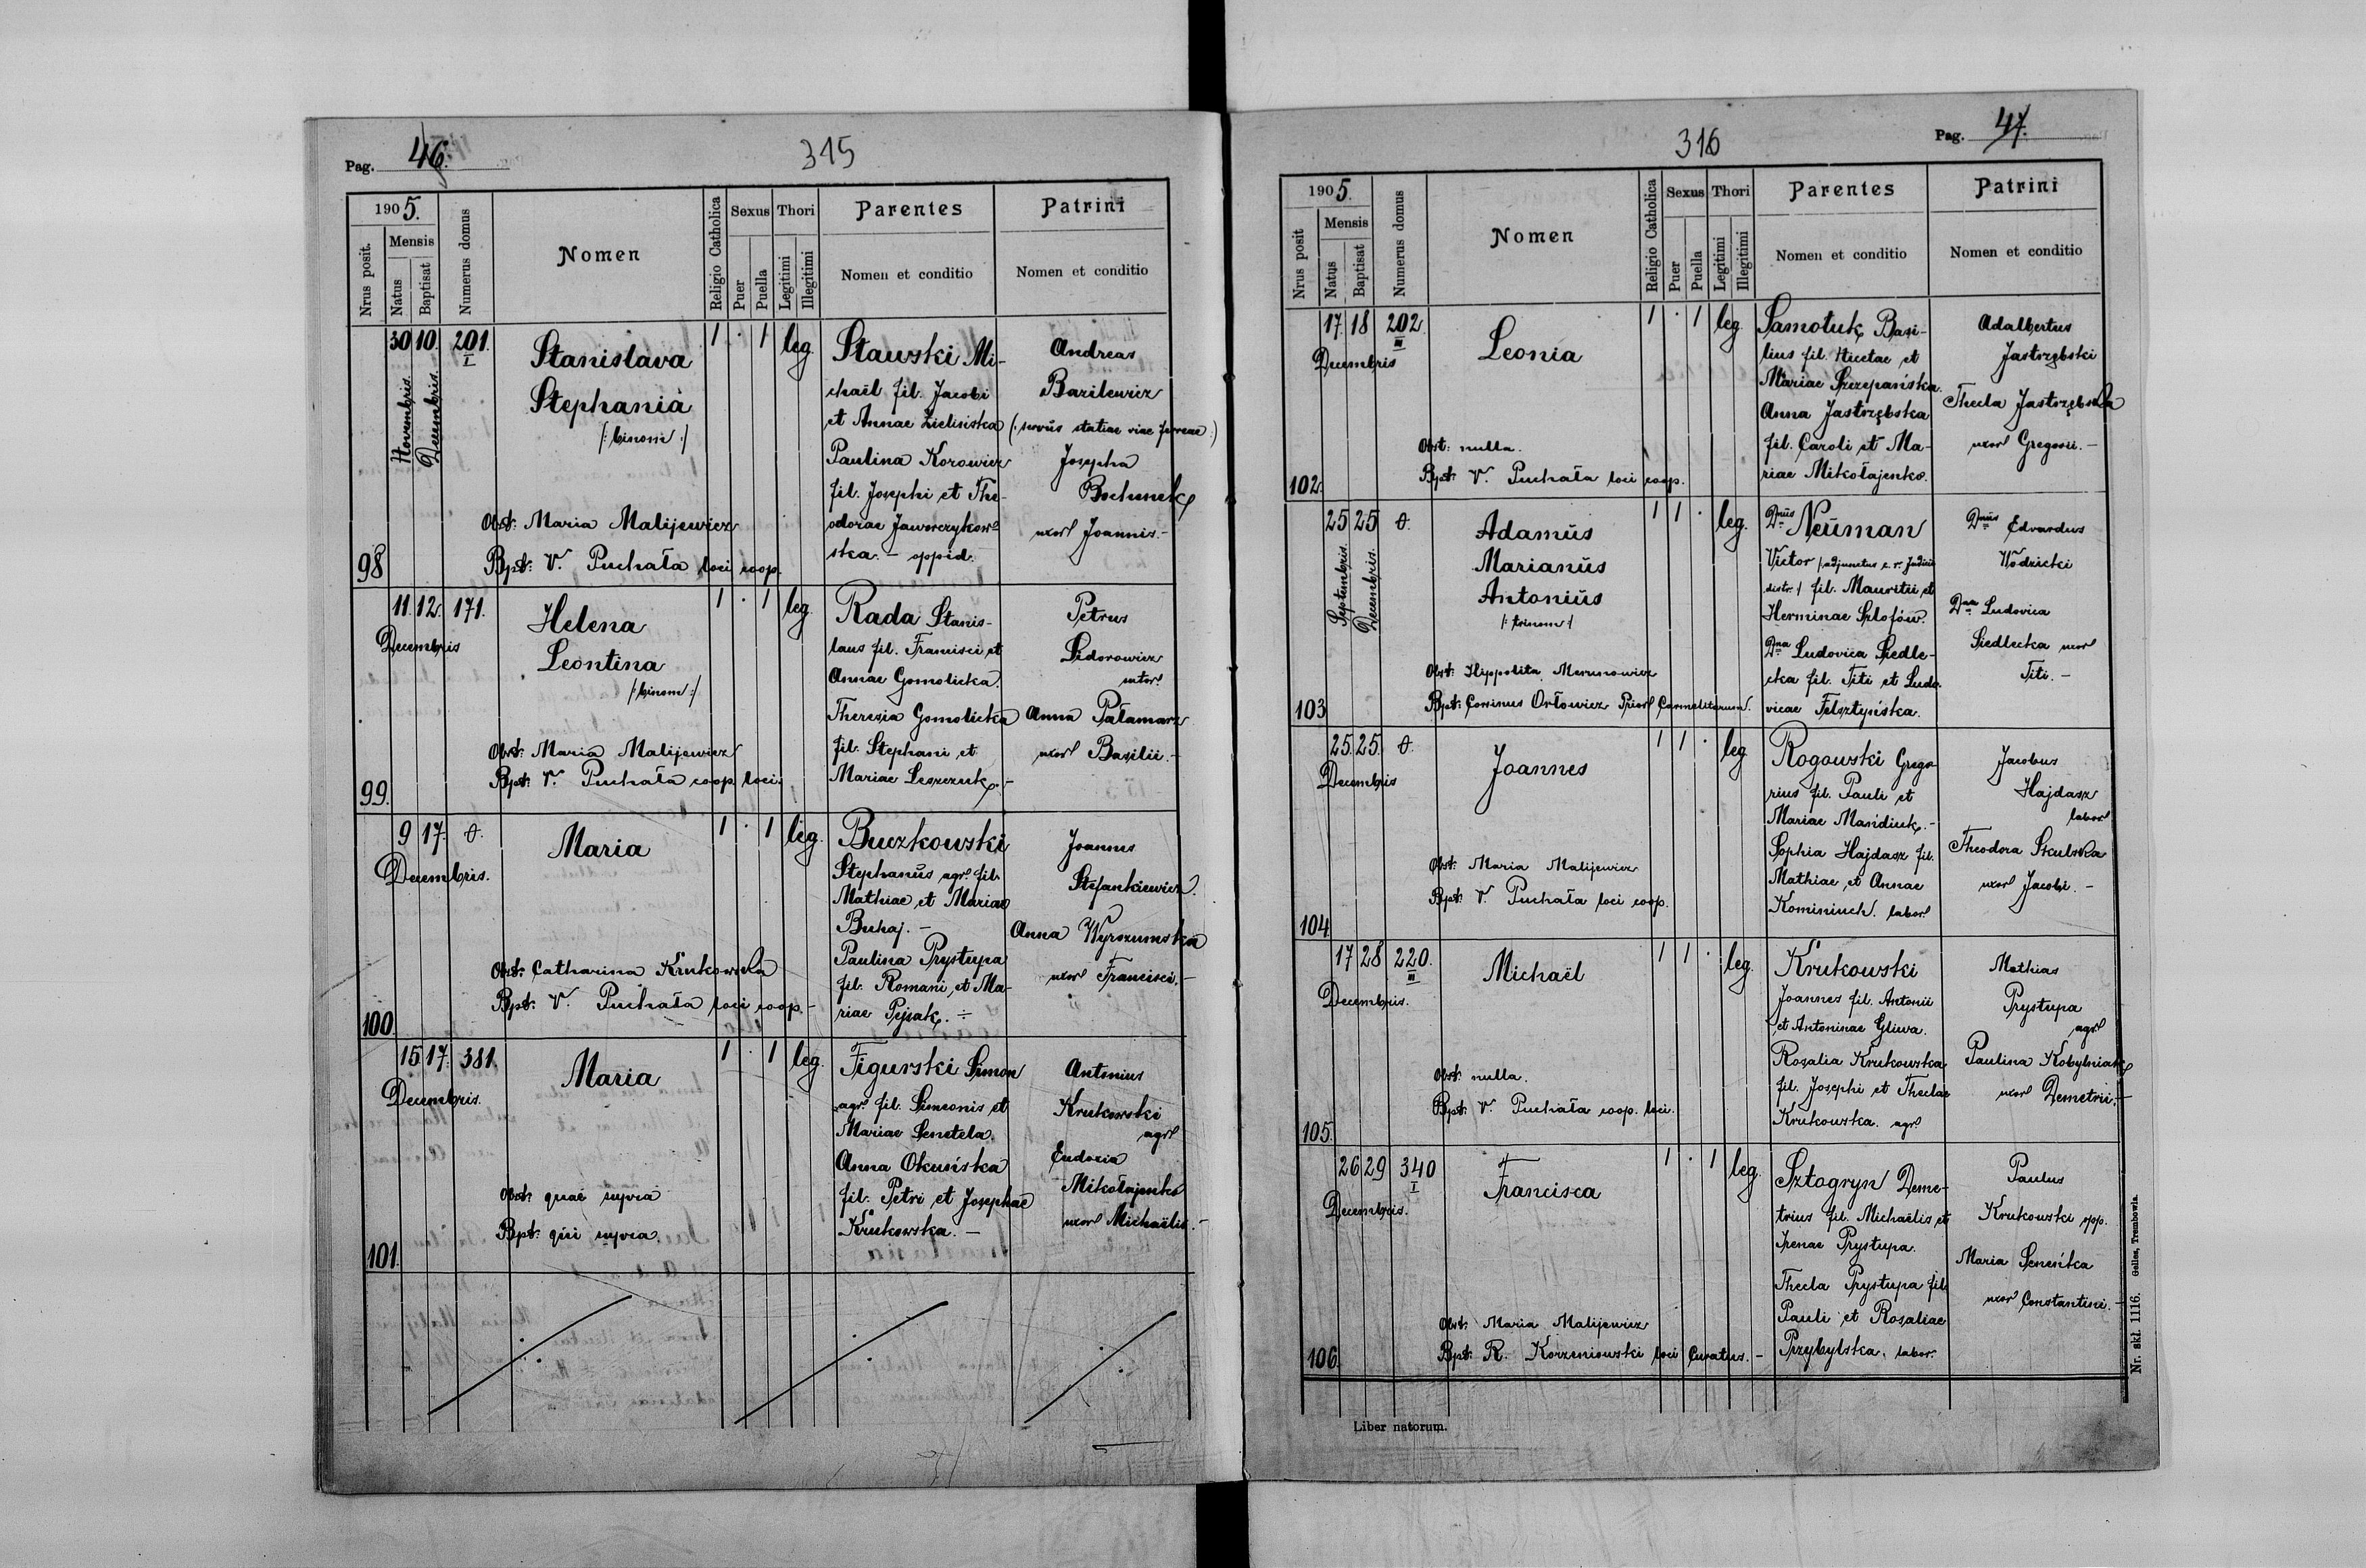 Pag. 46.
315
1905.
Nrus posit.
Mensis
Natus
Baptisat
Numerus domus
Nomen
Religio Catholica
Sexus
Puer
Puella
Thori
Legitimi
Illegitimi
Parentes
Nomen et conditio
Patrini
Nomen et conditio
98
30 10. 201.
I
Novembris.
Decembris.
Stanislava
Stephania
/:binom:/
Obst: Maria Malijewicz
Bpt: V. Puchała loci coop.
1 · 1 leg.
Stawski Mi-
chaël fil. Jacobi
et Annae Zielinska
Paulina Korowicz
fil. Josephi et The-
odorae Jaworczykow-
ska. – oppid.
Andreas
Bazilewicz
(: servus statiae viae ferreae :)
Josepha
Bochenek
uxor Joannis. –
99.
11. 12. 171.
Decembris
Helena
Leontina
/:binom:/
Obst: Maria Malijewicz
Bpt: V. Puchała coop. loci.
1 · 1 leg.
Rada Stanis-
laus fil. Francisci et
Annae Gomolicka.
Theresia Gomolicka
fil. Stephani et
Mariae Leszczuk. –
Petrus
Sidorowicz
sutor.
Anna Pałamarz
uxor Basilii. –
100.
9 17.
Decembris.
Maria
Obst: Catharina Krukowska
Bpt: V. Puchała loci coop. –
1 · 1 leg.
Buczkowski
Stephanus agr. fil.
Mathiae et Mariae
Buhaj. –
Paulina Prystupa
fil. Romani, et Ma-
riae Pejsak. ÷
Joannes
Stefankiewicz.
Anna Wyrozumska
uxor Francisci. –
101.
15 17. 381.
Decembris.
Maria
Obst: quae supra
Bpt: qui supra.
1 · 1 leg.
Figurski Simon
agr. fil. Simeonis et
Mariae Senetela.
Anna Okunska
fil. Petri et Josephae
Krukowska. –
Antonius
Krukowski
agr.
Eudoxia
Mikołajenko
uxor Michaëlis. –
316
Pag. 47.
1905.
Nrus posit
Mensis
Natus
Baptisat
Numerus domus
Nomen
Religio Catholica
Sexus
Puer
Puella
Thori
Legitimi
Illegitimi
Parentes
Nomen et conditio
Patrini
Nomen et conditio
102.
17 18 202.
III
Decembris
Leonia
Obst: nulla.
Bpt: V. Puchała loci coop.
1 · 1 leg.
Samotuk Basi-
lius fil. Nicetae et
Mariae Szczepańska.
Anna Jastrzębska
fil. Caroli et Ma-
riae Mikołajenko.
Adalbertus
Jastrzębski
Thecla Jastrzębska
uxor Gregorii. –
103
25 25
Septembris.
Decembris.
Adamus
Marianus
Antonius
/: trinom :/
Obst: Hippolita Merunowicz
Bpt: Corsinus Orłowicz Prior Carmelitarum.
1 1 · leg.
Dnus Neuman
Victor /adjunctus c. r. Judicii
distr./ fil. Mauritii et
Herminae
Dna Ludovica Siedle-
cka fil. Titi et Ludo-
vicae Felsztyńska.
Dnus Edvardus
Wodzicki
Dna Ludovica
Siedlecka uxor
Titi. –
104
25. 25.
Decembris
Joannes
Obst: Maria Malijewicz
Bpt: V. Puchała loci coop.
1 1 · leg
Rogowski Grego-
rius fil. Pauli et
Mariae Mandiuk. –
Sophia Hajdasz fil.
Mathiae, et Annae
Kominiuch. labor.
Jacobus
Hajdasz
labor.
Theodora Skulska
uxor Jacobi. –
105.
17 28 220.
III
Decembris.
Michaël
Obst: nulla.
Bpt: V. Puchała coop. loci.
1 1 · leg.
Krukowski
Joannes fil. Antonii
et Antoninae Gliwa.
Rosalia Krukowska
fil. Josephi et Theclae
Krukowska. agr.
Mathias
Prystupa
agr.
Paulina Kobylniak
uxor Demetrii. –
106.
26 29 340
I
Decembris.
Francisca
Obst: Maria Malijewicz
Bpt: R. Korzeniowski loci Curatus. –
1 · 1 leg.
Sztogryn Deme-
trius fil. Michaëlis et
Irenae Prystupa.
Thecla Prystupa fil.
Pauli et Rosaliae
Przybylska. labor.
Paulus
Krukowski opp.
Maria Seneńka
uxor Constantini. –
Liber natorum.
Nr. skł. 1116. Gelles, Trembowla.